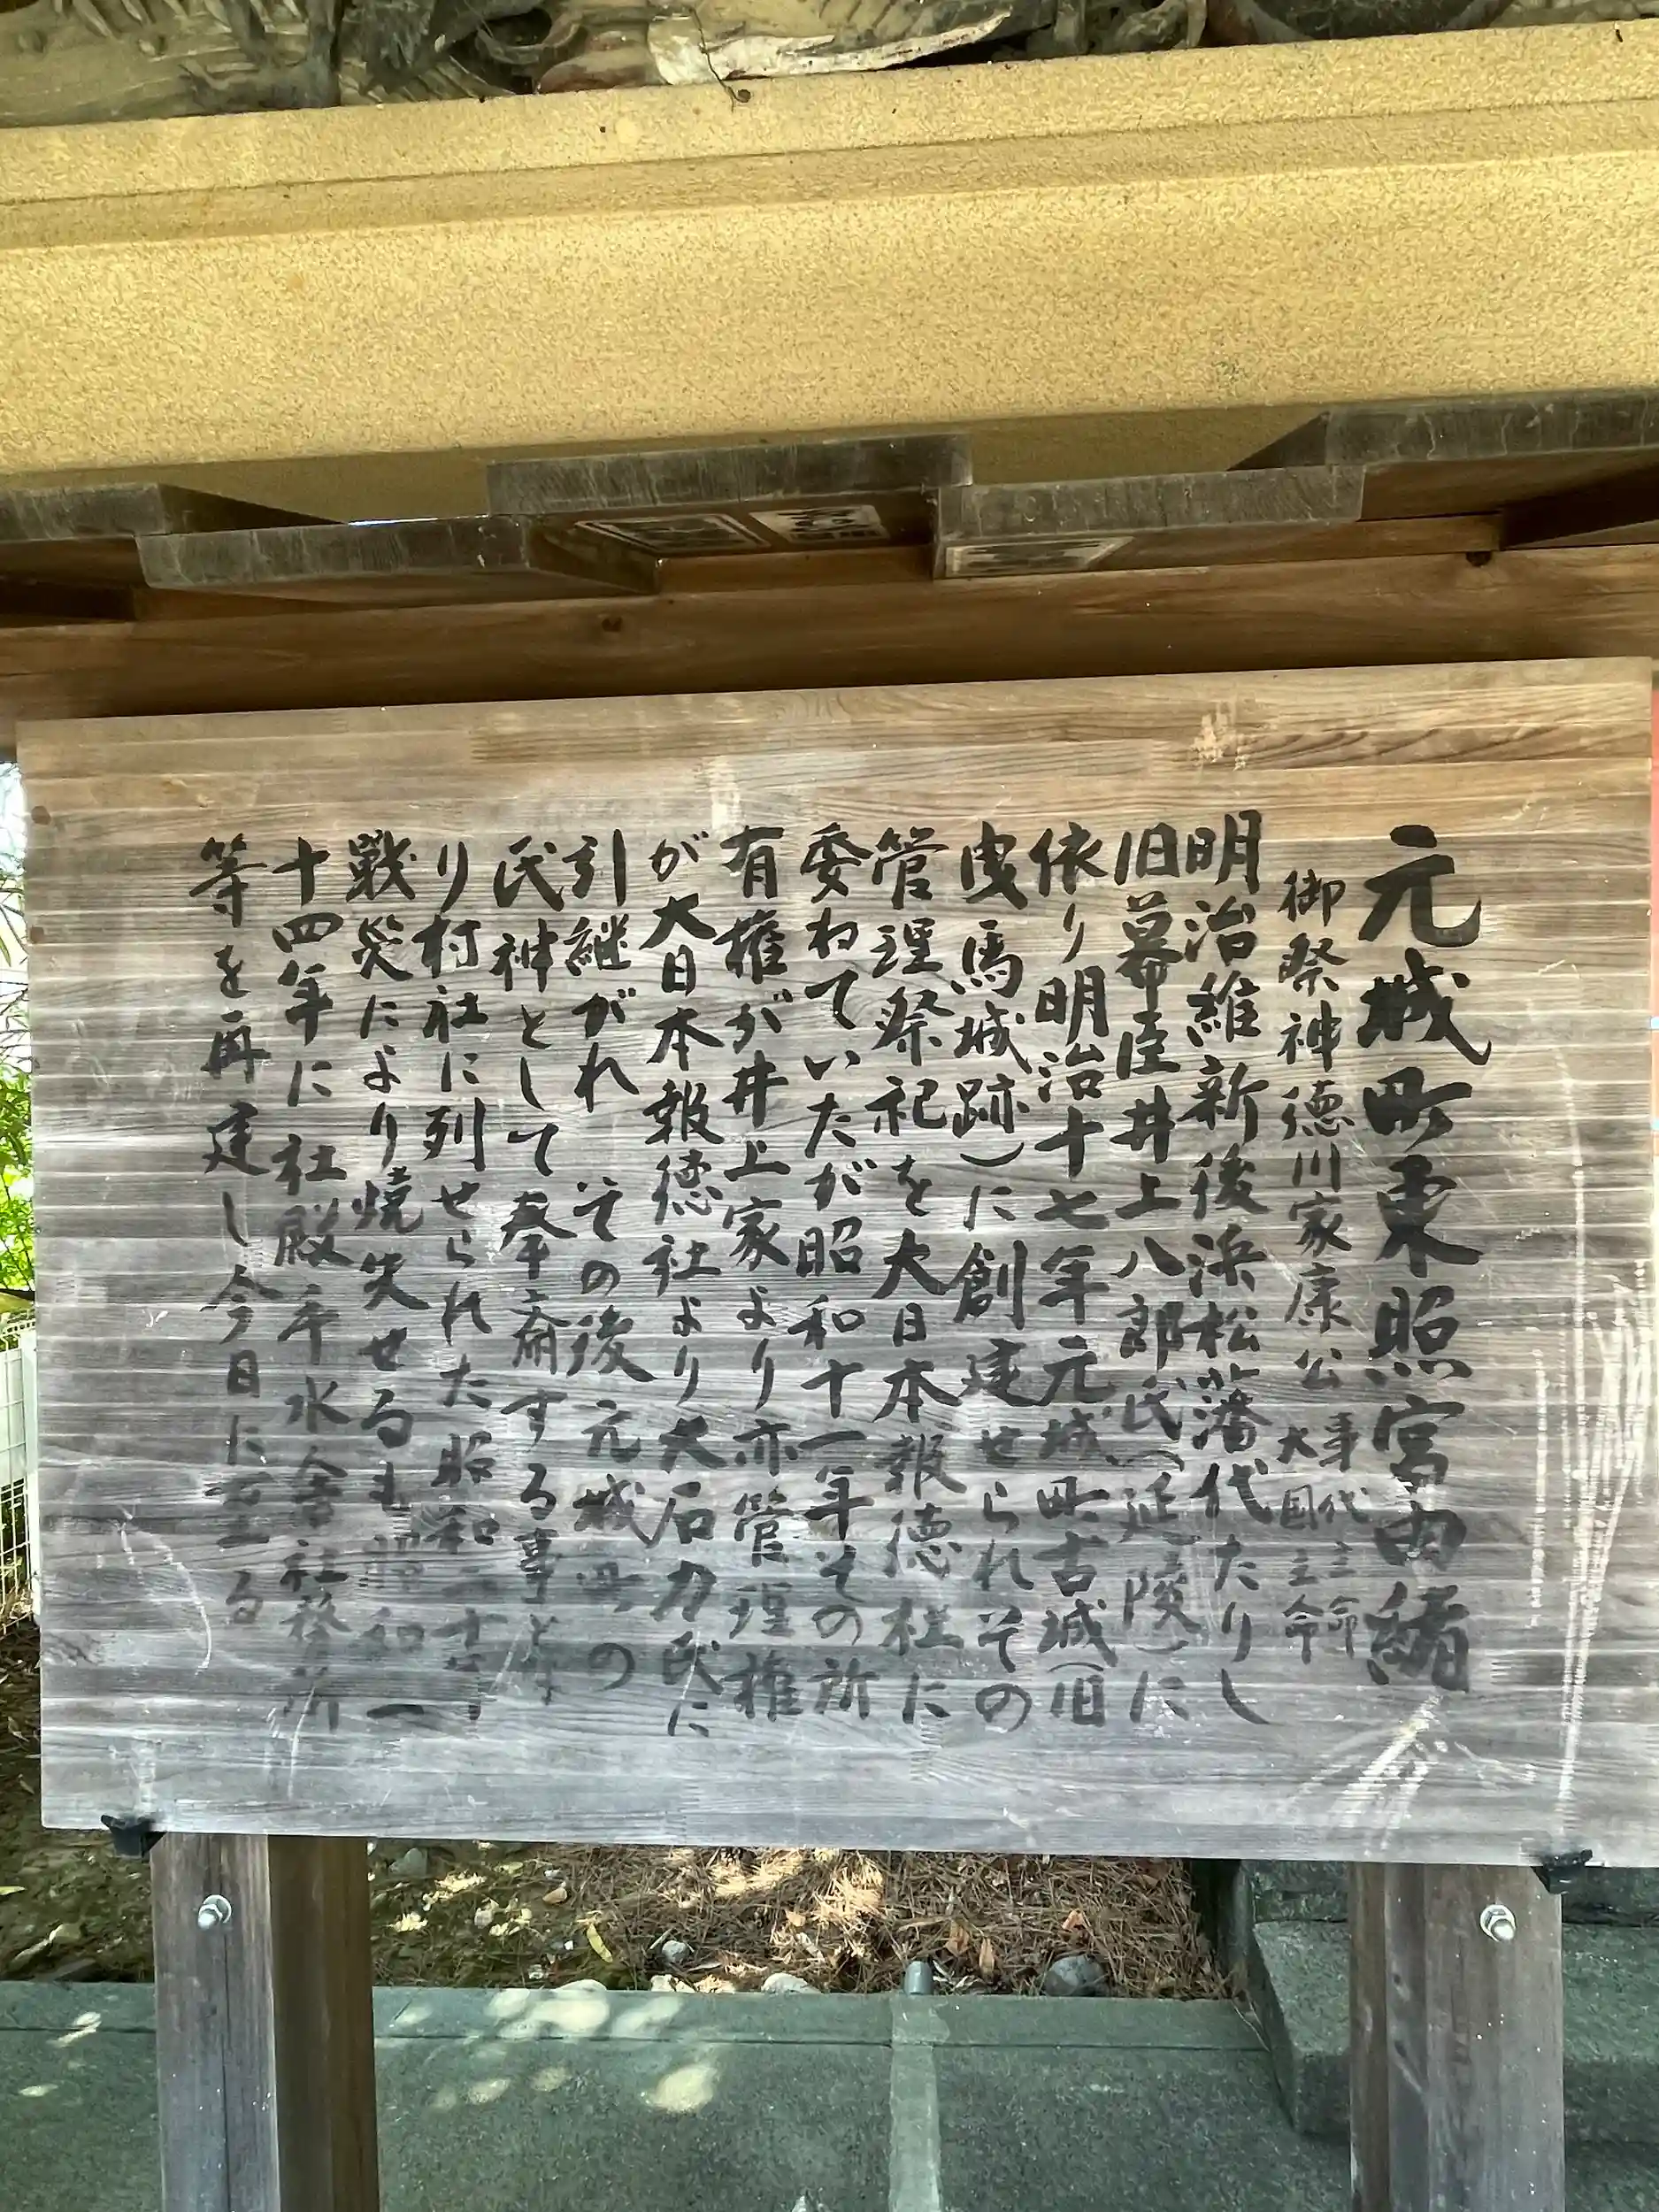 元城町東照宮由緒
御祭神徳川家康公 事代主命 大国主命
明治維新後浜松藩代たりし
旧幕臣井上八郎氏(延陵)に
依り明治十七年元城町古城(旧
曳馬城跡)に創建せられその
管理祭祀を大日本報徳社に
委ねていたが昭和十一年その所
有権が井上家より亦管理権
が大日本報徳社より大石力氏に
引継がれ その後元城町の
氏神として奉斎する事とな
り村社に列せられた昭和二十年
戦災により焼失せるも昭和一
十四年に社殿手水舎社務所
等を再建し今日に至る